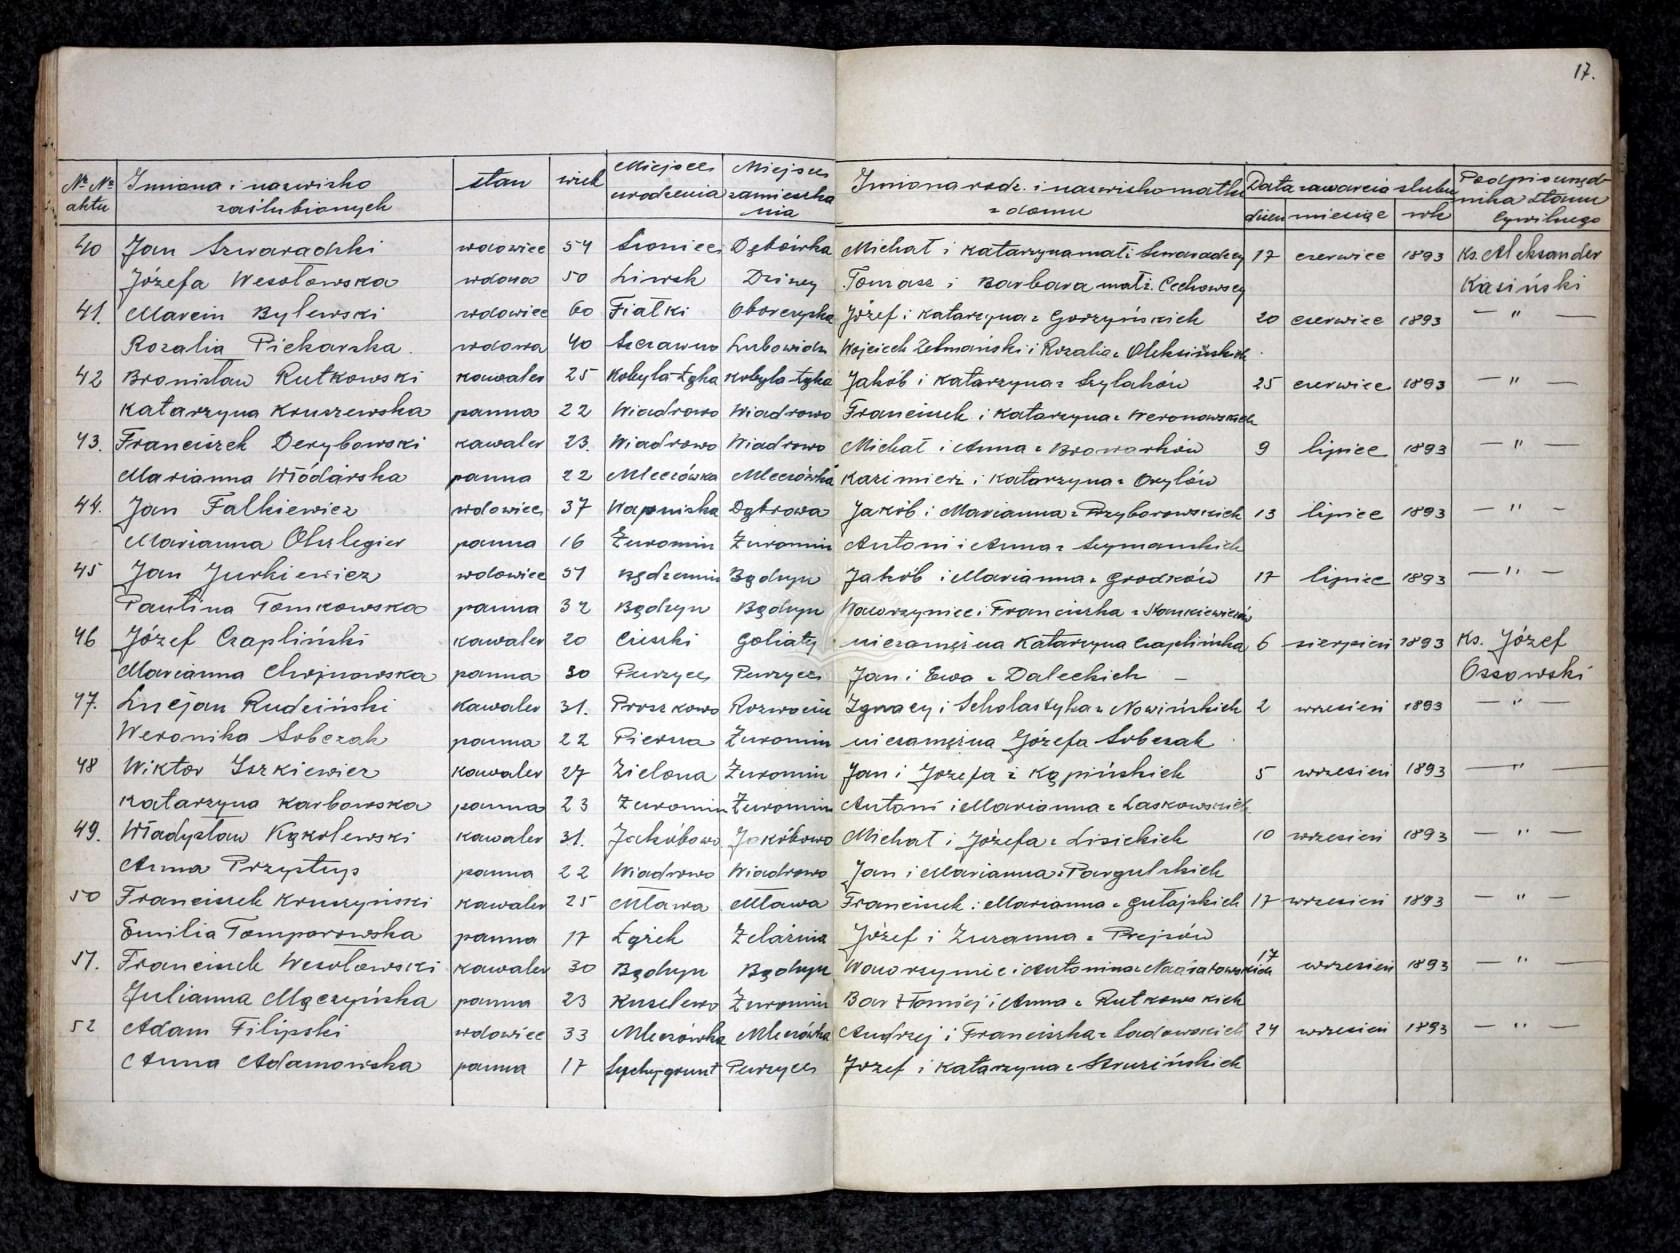 17.
№ № aktu | Imiona i nazwisko zaślubionych | stan | wiek | Miejsce urodzenia | Miejsce zamieszkania | Imiona rodz. i nazwisko matki z domu | Data zawarcia ślubu | Podpis urzędnika stanu cywilnego
dzień | miesiąc | rok
40 Jan Szwaradzki wdowiec 54 Dębówka Michał i Katarzyna małż. 17 czerwiec 1893 Ks. Aleksander
Józefa Wesołowska wdowa 50 Liwsk Dziwy Tomasz i Barbara małż. Cechowscy Kasiński
41. Marcin Bylewski wdowiec 60 Fiałki Józef i Katarzyna z Gorzyńskich 20 czerwiec 1893 — " —
Rozalia Piekarska. wdowa 40 Szczawno Lubowidz Wojciech Zelmański i Rozalia z Oleksińskich
42 Bronisław Rutkowski kawaler 25 Kobyla-Łąka Kobyla-Łąka Jakób i Katarzyna z Szylaków 25 czerwiec 1893 — " —
Katarzyna Kruszewska panna 22 Wiadrowo Wiadrowo Franciszek i Katarzyna z Weronowskich
43. Franciszek Derybowski kawaler 23. Wiadrowo Wiadrowo Michał i Anna z Browarków 9 lipiec 1893 — " —
Marianna Włódarska panna 22 Mleczówka Mleczówka Kazimierz i Katarzyna z Orylów
44. Jan Falkiewicz wdowiec 37 Wapniska Dąbrowa Jakób i Marianna z Przyborowskich 13 lipiec 1893 — " —
Marianna Olszlegier panna 16 Żuromin Żuromin Antoni i Anna z Szymanskich
45 Jan Jurkiewicz wdowiec 51 Będzymin Bądzyn Jakób i Marianna z Grodków 17 lipiec 1893 — " —
Paulina Tomkowska panna 32 Bądzyn Bądzyn Wawrzyniec i Franciszka z Stankiewiczów
46 Józef Czapliński kawaler 20 Cieszki Goliaty niezamężna Katarzyna Czaplińska 6 sierpień 1893 Ks. Józef
Marianna Chojnowska panna 30 Purzyce Purzyce Jan i Ewa z Daleckich — Ossowski
47. Lucjan Rudziński kawaler 31. Proszkowo Rozwozin Ignacy i Scholastyka z Nowińskich 2 wrzesień 1893 — " —
Weronika Sobczak panna 22 Pierna Żuromin niezamężna Józefa Sobczak
48 Wiktor Iszkiewicz kawaler 27 Zielona Żuromin Jan i Józefa z Kąpińskich 5 wrzesień 1893 — " —
Katarzyna Karbowska panna 23 Żuromin Żuromin Antoni i Marianna z Laskowskich
49. Władysław Kąkolewski kawaler 31. Jakóbowo Jakóbowo Michał i Józefa z Lisickich 10 wrzesień 1893 — " —
Anna Przystup panna 22 Wiadrowo Wiadrowo Jan i Marianna z Pargulskich
50 Franciszek Kruszyński kawaler 25 Mława Mława Franciszek i Marianna z Gutajskich 17 wrzesień 1893 — " —
Emilia Tomporowska panna 17 Łążek Zelaźnia Józef i Zuzanna z Prejsów
51. Franciszek Wesołowski kawaler 30 Bądzyn Bądzyn Wawrzyniec i Antonina z 17 wrzesień 1893 — " —
Julianna Mączyńska panna 23 Kuzlewo Żuromin Bartłomiej i Anna z Rutkowskich
52 Adam Filipski wdowiec 33 Mleczówka Mleczówka Andrzej i Franciszka z Sadowskich 24 wrzesień 1893 — " —
Anna Adamowska panna 17 Suchygrunt Purzyce Józef i Katarzyna z Struzińskich